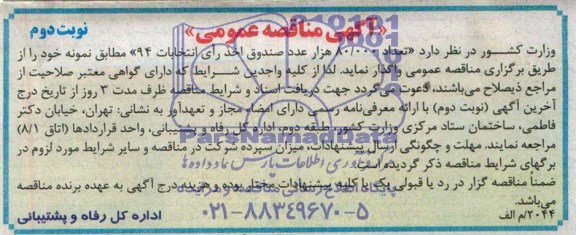 «آگهی مناقصه عمومی»
نوبت دوم
وزارت کشور در نظر دارد «تعداد ۸۰/۰۰۰ هزار عدد صندوق اخذ رأی انتخابات ۹۴» مطابق نمونه خود را از
طریق برگزاری مناقصه عمومی واگذار نماید. لذا از کلیه واجدین شرایط که دارای گواهی معتبر صلاحیت از
مراجع ذیصلاح می‌باشند، دعوت می‌گردد جهت دریافت اسناد و شرایط مناقصه ظرف مدت ۳ روز از تاریخ درج
آخرین آگهی (نوبت دوم) با ارائه معرفی‌نامه رسمی دارای امضاء مجاز و تعهدآور به نشانی: تهران، خیابان دکتر
فاطمی، ساختمان ستاد مرکزی وزارت کشور، طبقه دوم، اداره کل رفاه و پشتیبانی، واحد قراردادها (اتاق ۸/۱)
مراجعه نمایند. مهلت و چگونگی ارسال پیشنهادات، میزان سپرده شرکت در مناقصه و سایر شرایط مورد لزوم در
برگهای شرایط مناقصه ذکر گردیده است.
ضمناً مناقصه گزار در رد یا قبولی یک یا کلیه پیشنهادات مختار بوده و هزینه درج آگهی به عهده برنده مناقصه
می‌باشد.
۲۰۴۴/م الف
اداره کل رفاه و پشتیبانی
ParsNamadData
۰۲۱-۸۸۳۴۹۶۷۰-۵